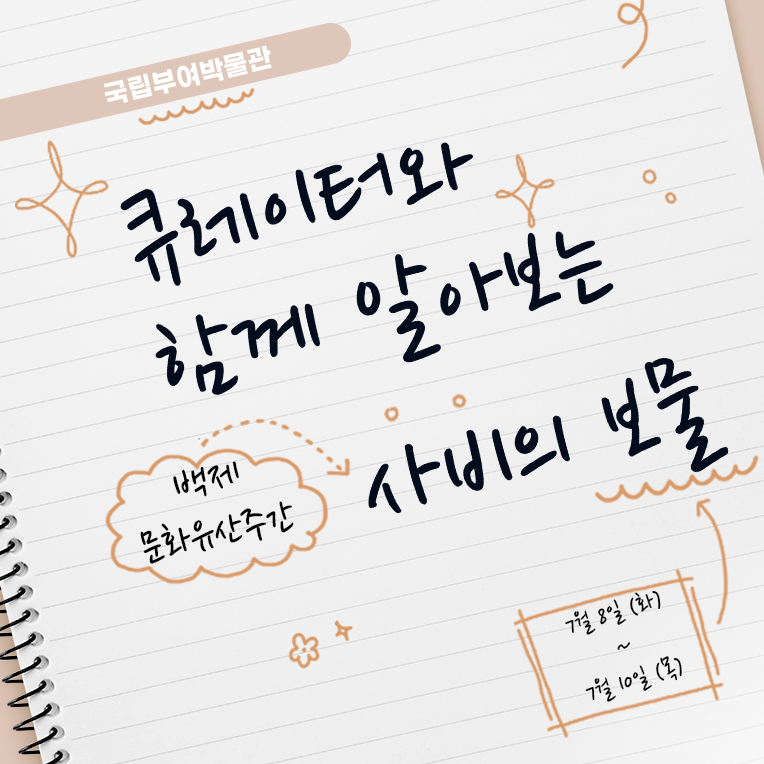 국립부여박물관
큐레이터와
함께 알아보는
사비의 보물
백제
문화유산주간
7월 8일 (화)
~
7월 10일 (목)